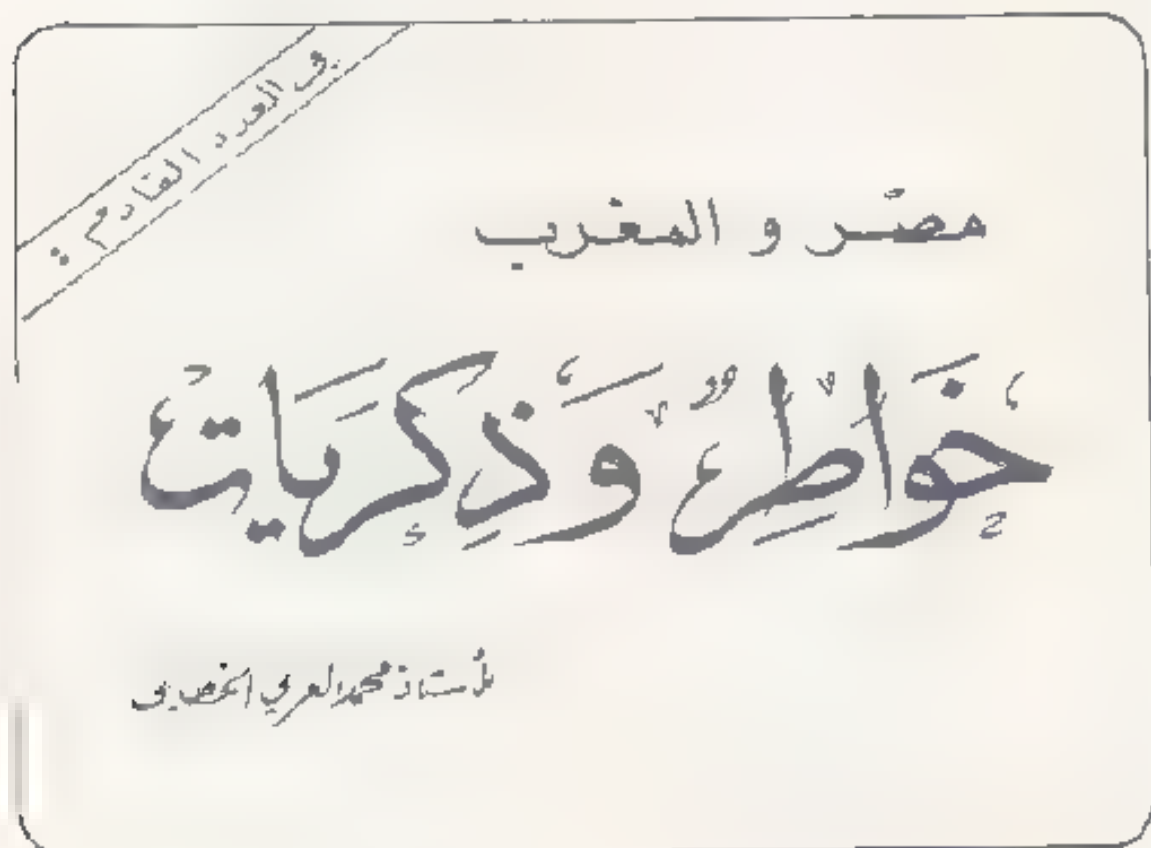 في العدد القادم :
مصر و المغرب
خَوَاطِرٌ وَذِكْرَيَات
للأستاذ محمد العربي الخطابي